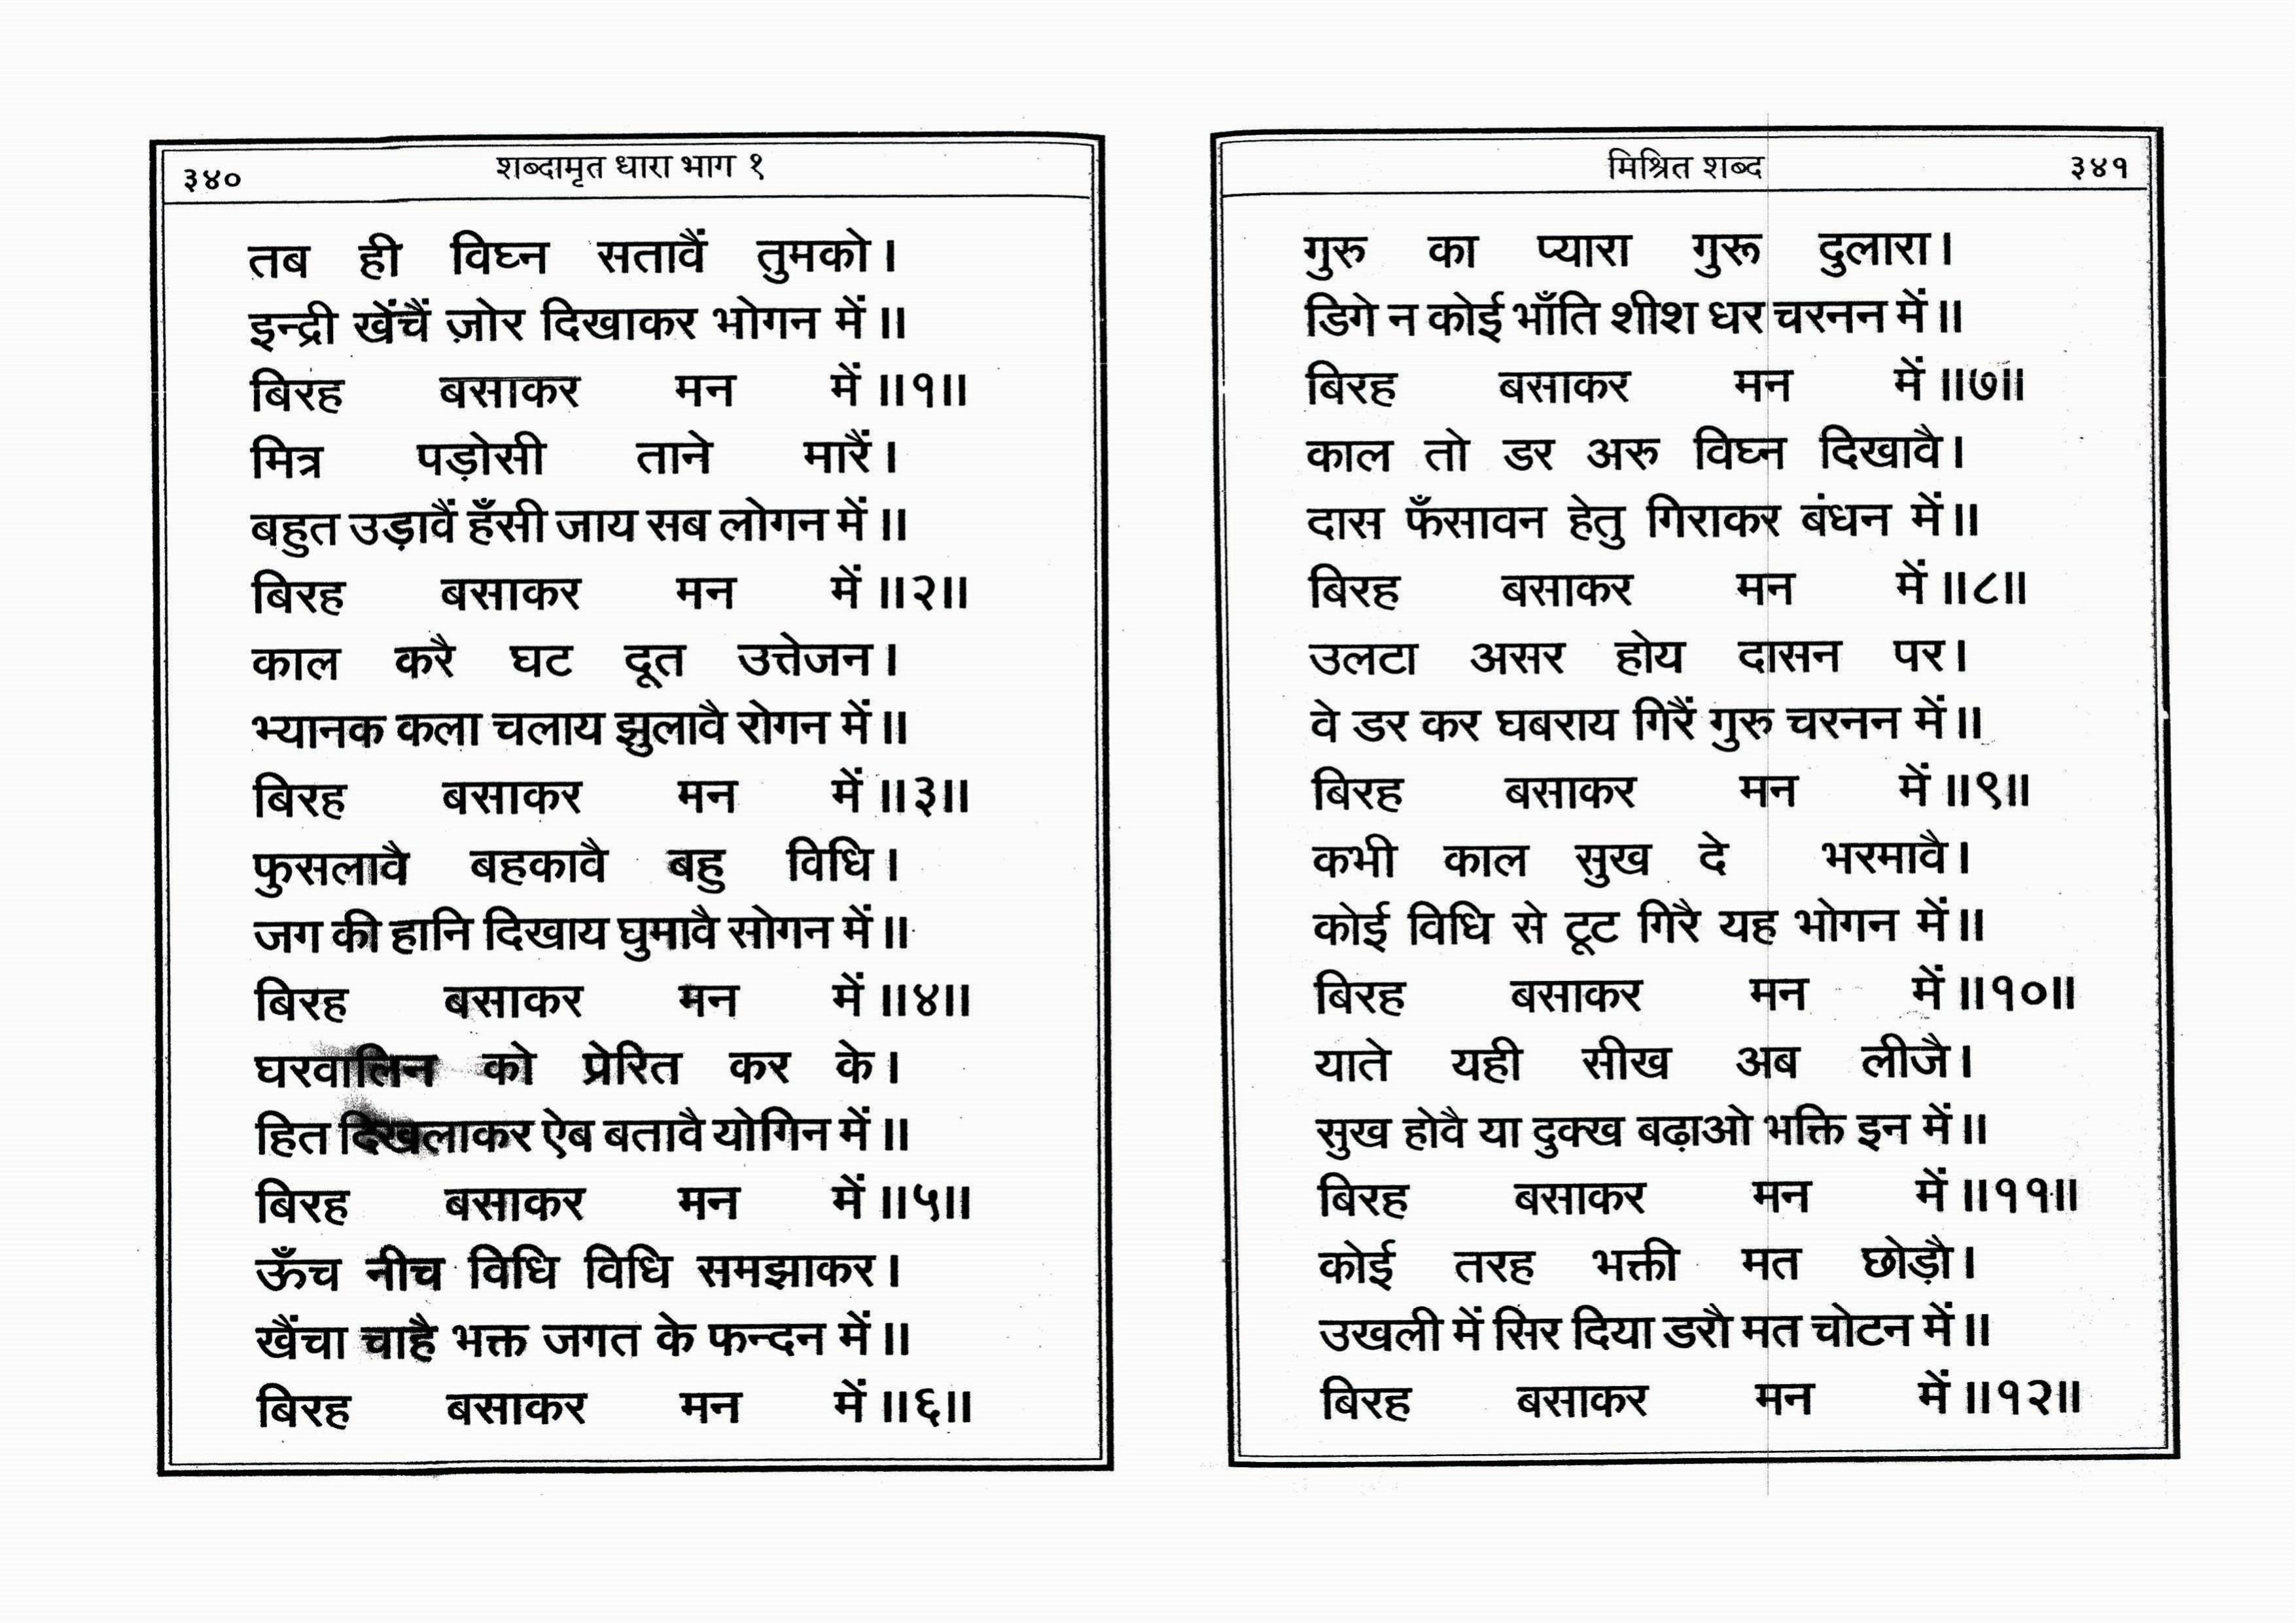 ३४०
शब्दामृत धारा भाग १
तब ही विघ्न सतावैं तुमको।
इन्द्री खेंचैं ज़ोर दिखाकर भोगन में॥
बिरह बसाकर मन में॥१॥
मित्र पड़ोसी ताने मारैं।
बहुत उड़ावैं हँसी जाय सब लोगन में॥
बिरह बसाकर मन में॥२॥
काल करै घट दूत उत्तेजन।
भ्यानक कला चलाय झुलावै रोगन में॥
बिरह बसाकर मन में॥३॥
फुसलावै बहकावै बहु विधि।
जग की हानि दिखाय घुमावै सोगन में॥
बिरह बसाकर मन में॥४॥
घरवालिन को प्रेरित कर के।
हित दिखलाकर ऐब बतावै योगिन में॥
बिरह बसाकर मन में॥५॥
ऊँच नीच विधि विधि समझाकर।
खैंचा चाहै भक्त जगत के फन्दन में॥
बिरह बसाकर मन में॥६॥
मिश्रित शब्द
३४१
गुरु का प्यारा गुरू दुलारा।
डिगे न कोई भाँति शीश धर चरनन में॥
बिरह बसाकर मन में॥७॥
काल तो डर अरु विघ्न दिखावै।
दास फँसावन हेतु गिराकर बंधन में॥
बिरह बसाकर मन में॥८॥
उलटा असर होय दासन पर।
वे डर कर घबराय गिरैं गुरु चरनन में॥
बिरह बसाकर मन में॥९॥
कभी काल सुख दे भरमावै।
कोई विधि से टूट गिरै यह भोगन में॥
बिरह बसाकर मन में॥१०॥
याते यही सीख अब लीजै।
सुख होवै या दुक्ख बढ़ाओ भक्ति इन में॥
बिरह बसाकर मन में॥११॥
कोई तरह भक्ती मत छोड़ौ।
उखली में सिर दिया डरौ मत चोटन में॥
बिरह बसाकर मन में॥१२॥